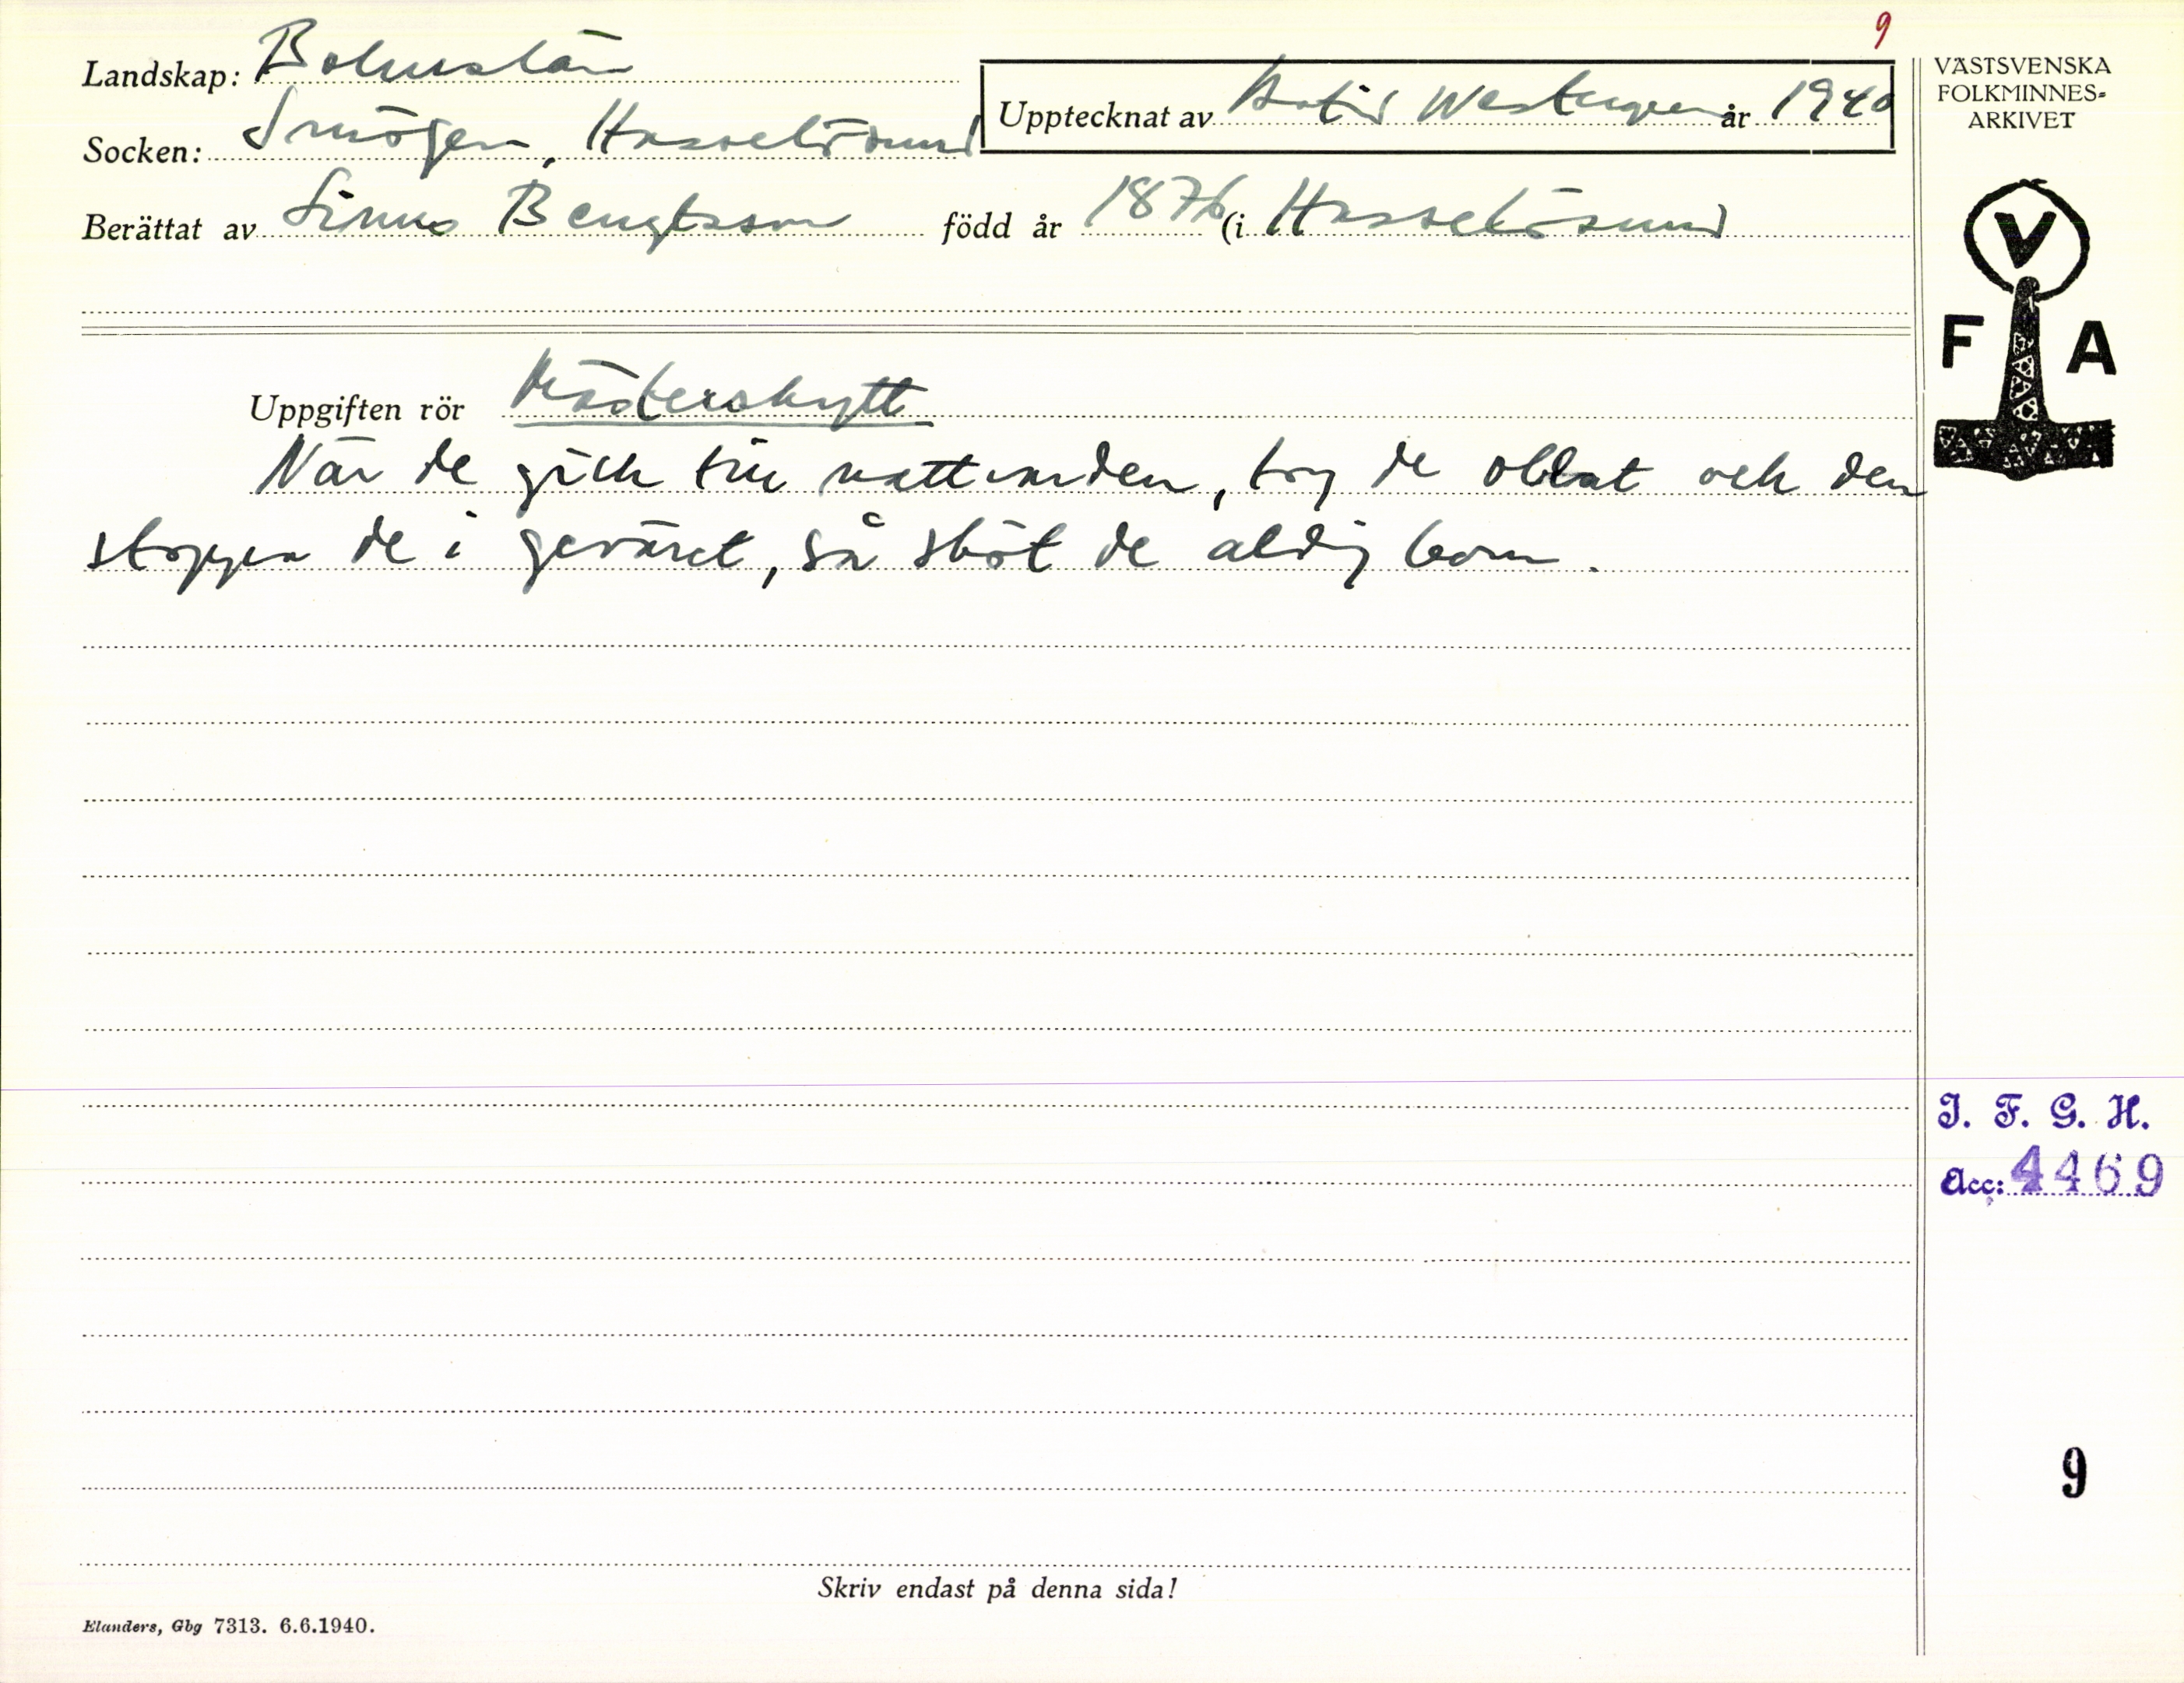 9
Landskap: Bohuslän
Upptecknat av Westergren år 1940
Socken: Smögen, Hasselösund
Berättat av Bengtsson född år 1876 (i Hasselösund
VÄSTSVENSKA
FOLKMINNES=
ARKIVET
V
F A
Uppgiften rör Mästerskytt
När de gick till nattvarden, tog de oblat och den
stoppa de i geväret, så sköt de aldrig bom.
I. F. G. H.
Acc: 4469
9
Skriv endast på denna sida!
Elanders, Gbg 7313. 6.6.1940.